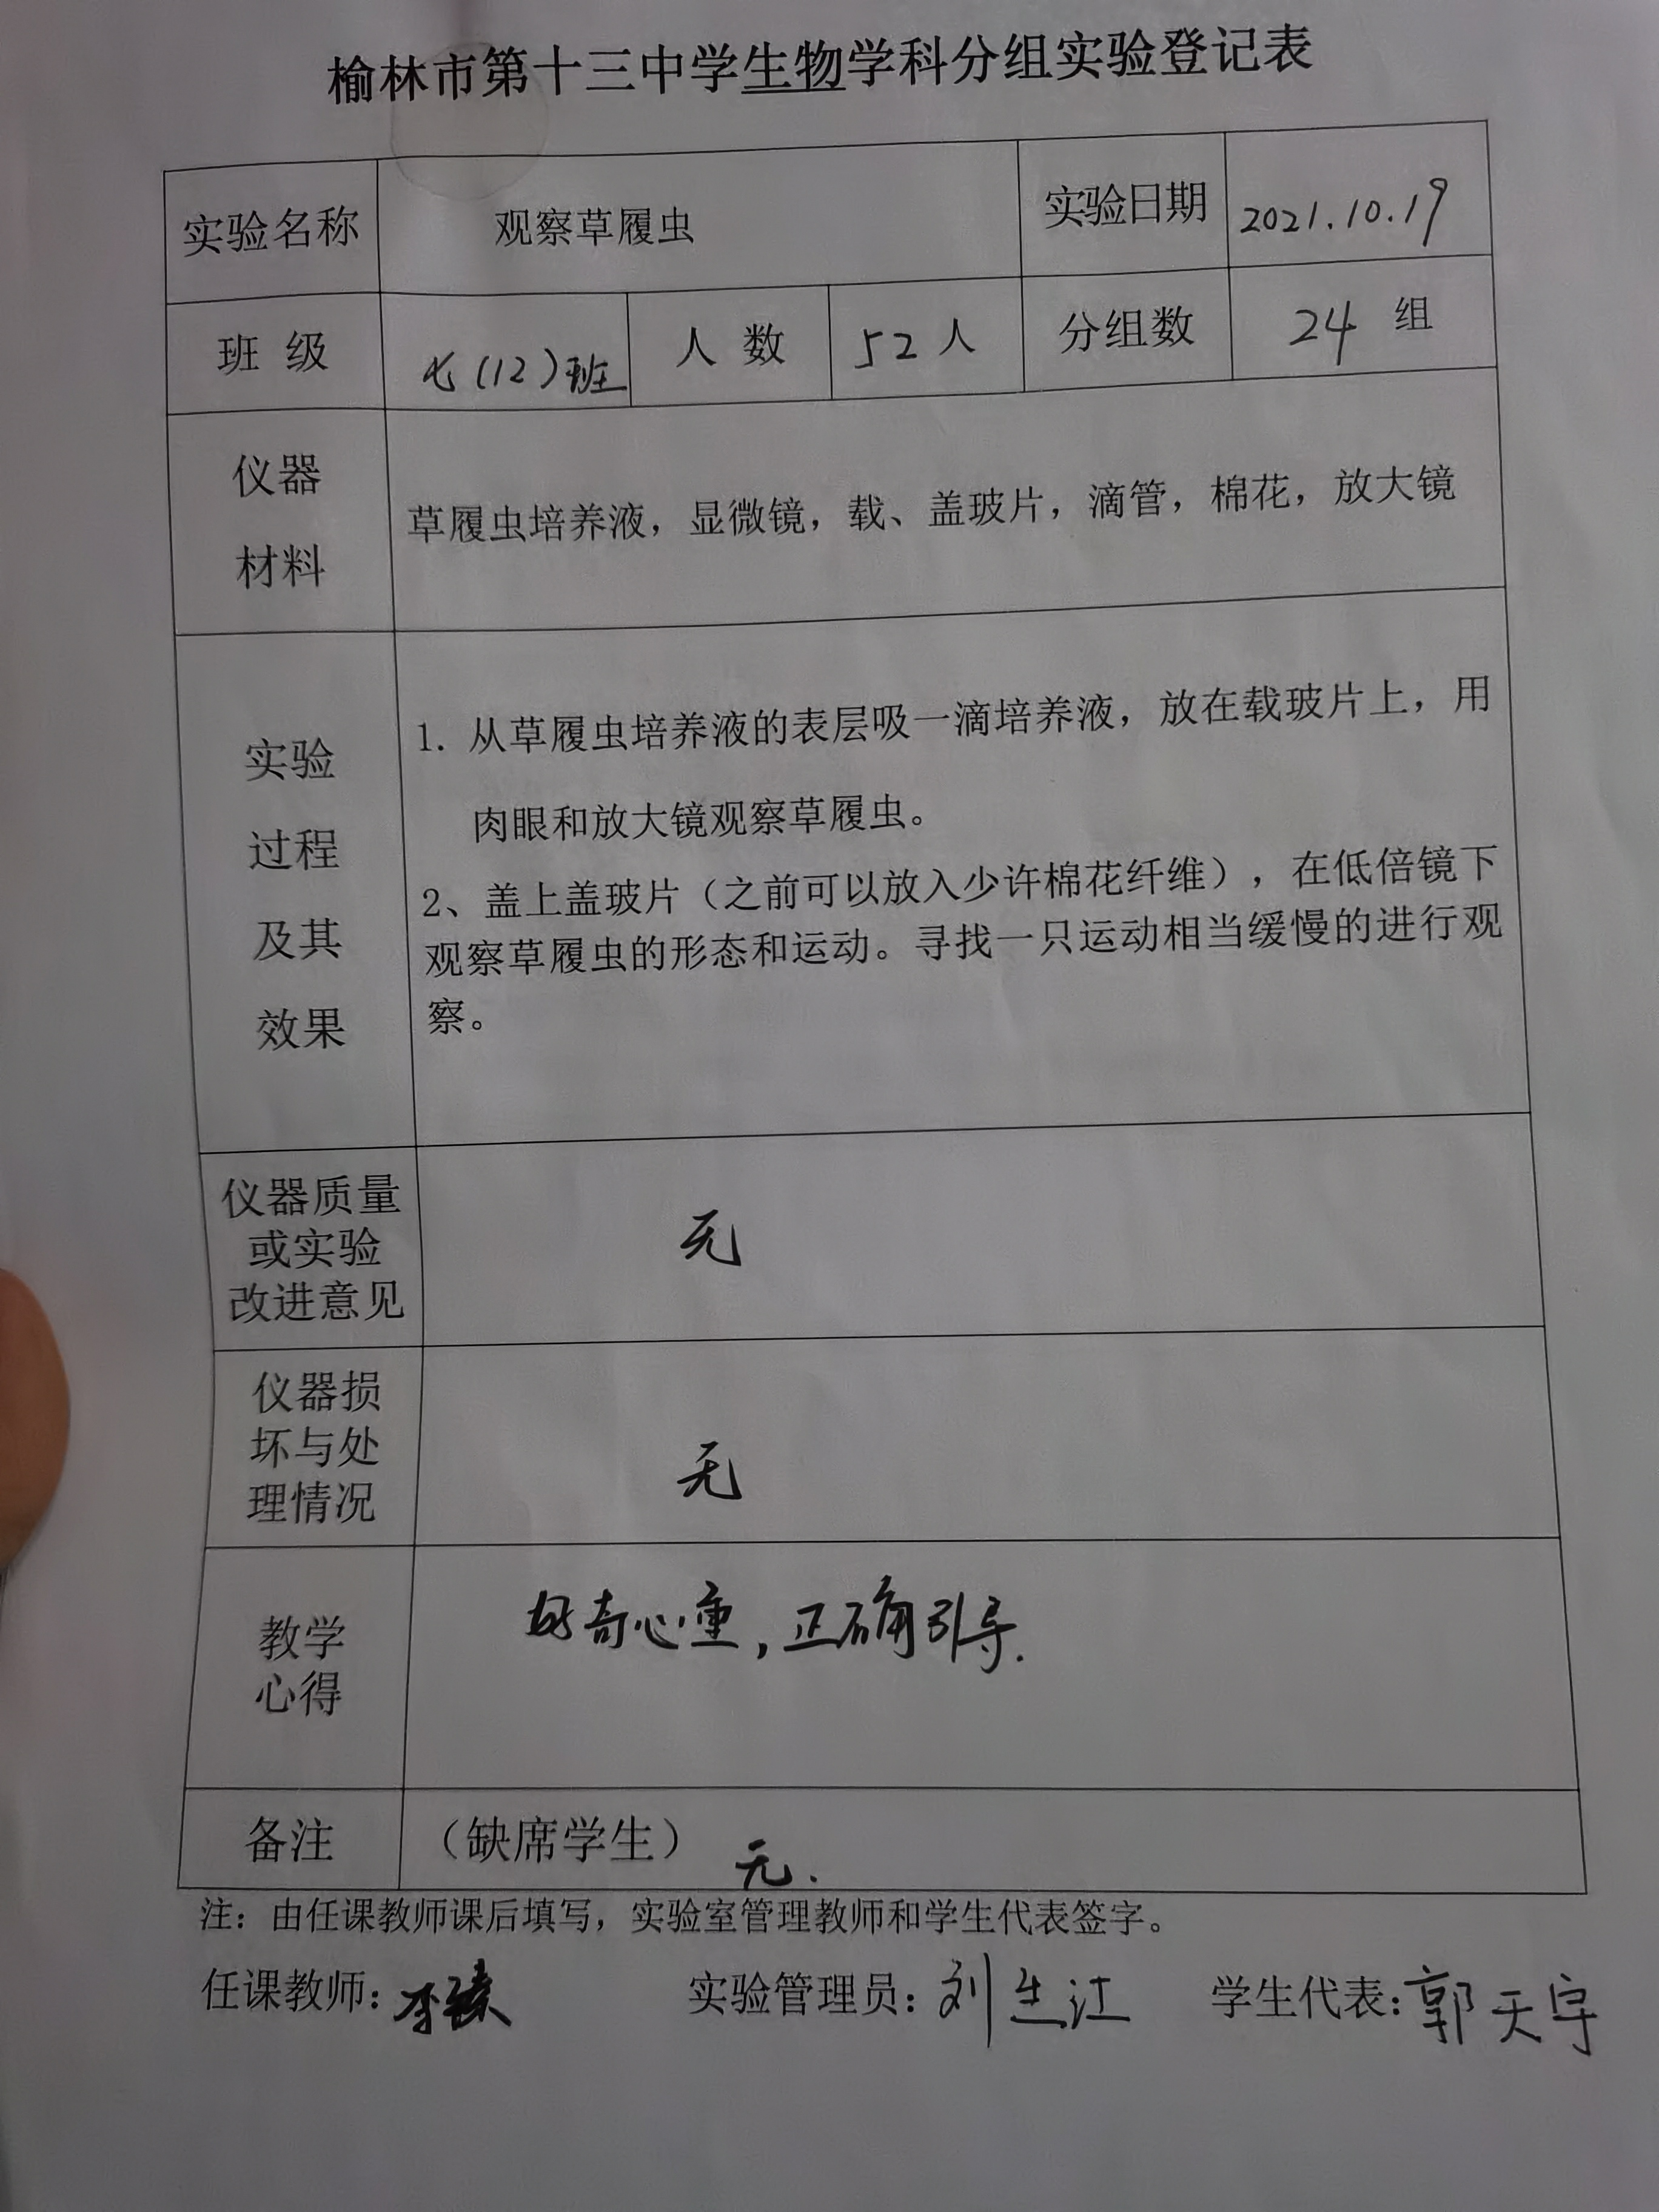 榆林市第十三中学生物学科分组实验登记表
实验名称 观察草履虫 实验日期 2021.10.19
班 级 七(12)班 人 数 52人 分组数 24 组
仪器
材料
草履虫培养液，显微镜，载、盖玻片，滴管，棉花，放大镜
实验
过程
及其
效果
1. 从草履虫培养液的表层吸一滴培养液，放在载玻片上，用
肉眼和放大镜观察草履虫。
2、盖上盖玻片（之前可以放入少许棉花纤维），在低倍镜下
观察草履虫的形态和运动。寻找一只运动相当缓慢的进行观
察。
仪器质量
或实验
改进意见
无
仪器损
坏与处
理情况
无
教学
心得
好奇心重，正确引导.
备注 （缺席学生） 无.
注：由任课教师课后填写，实验室管理教师和学生代表签字。
任课教师: 李 实验管理员: 刘生江 学生代表: 郭天宇